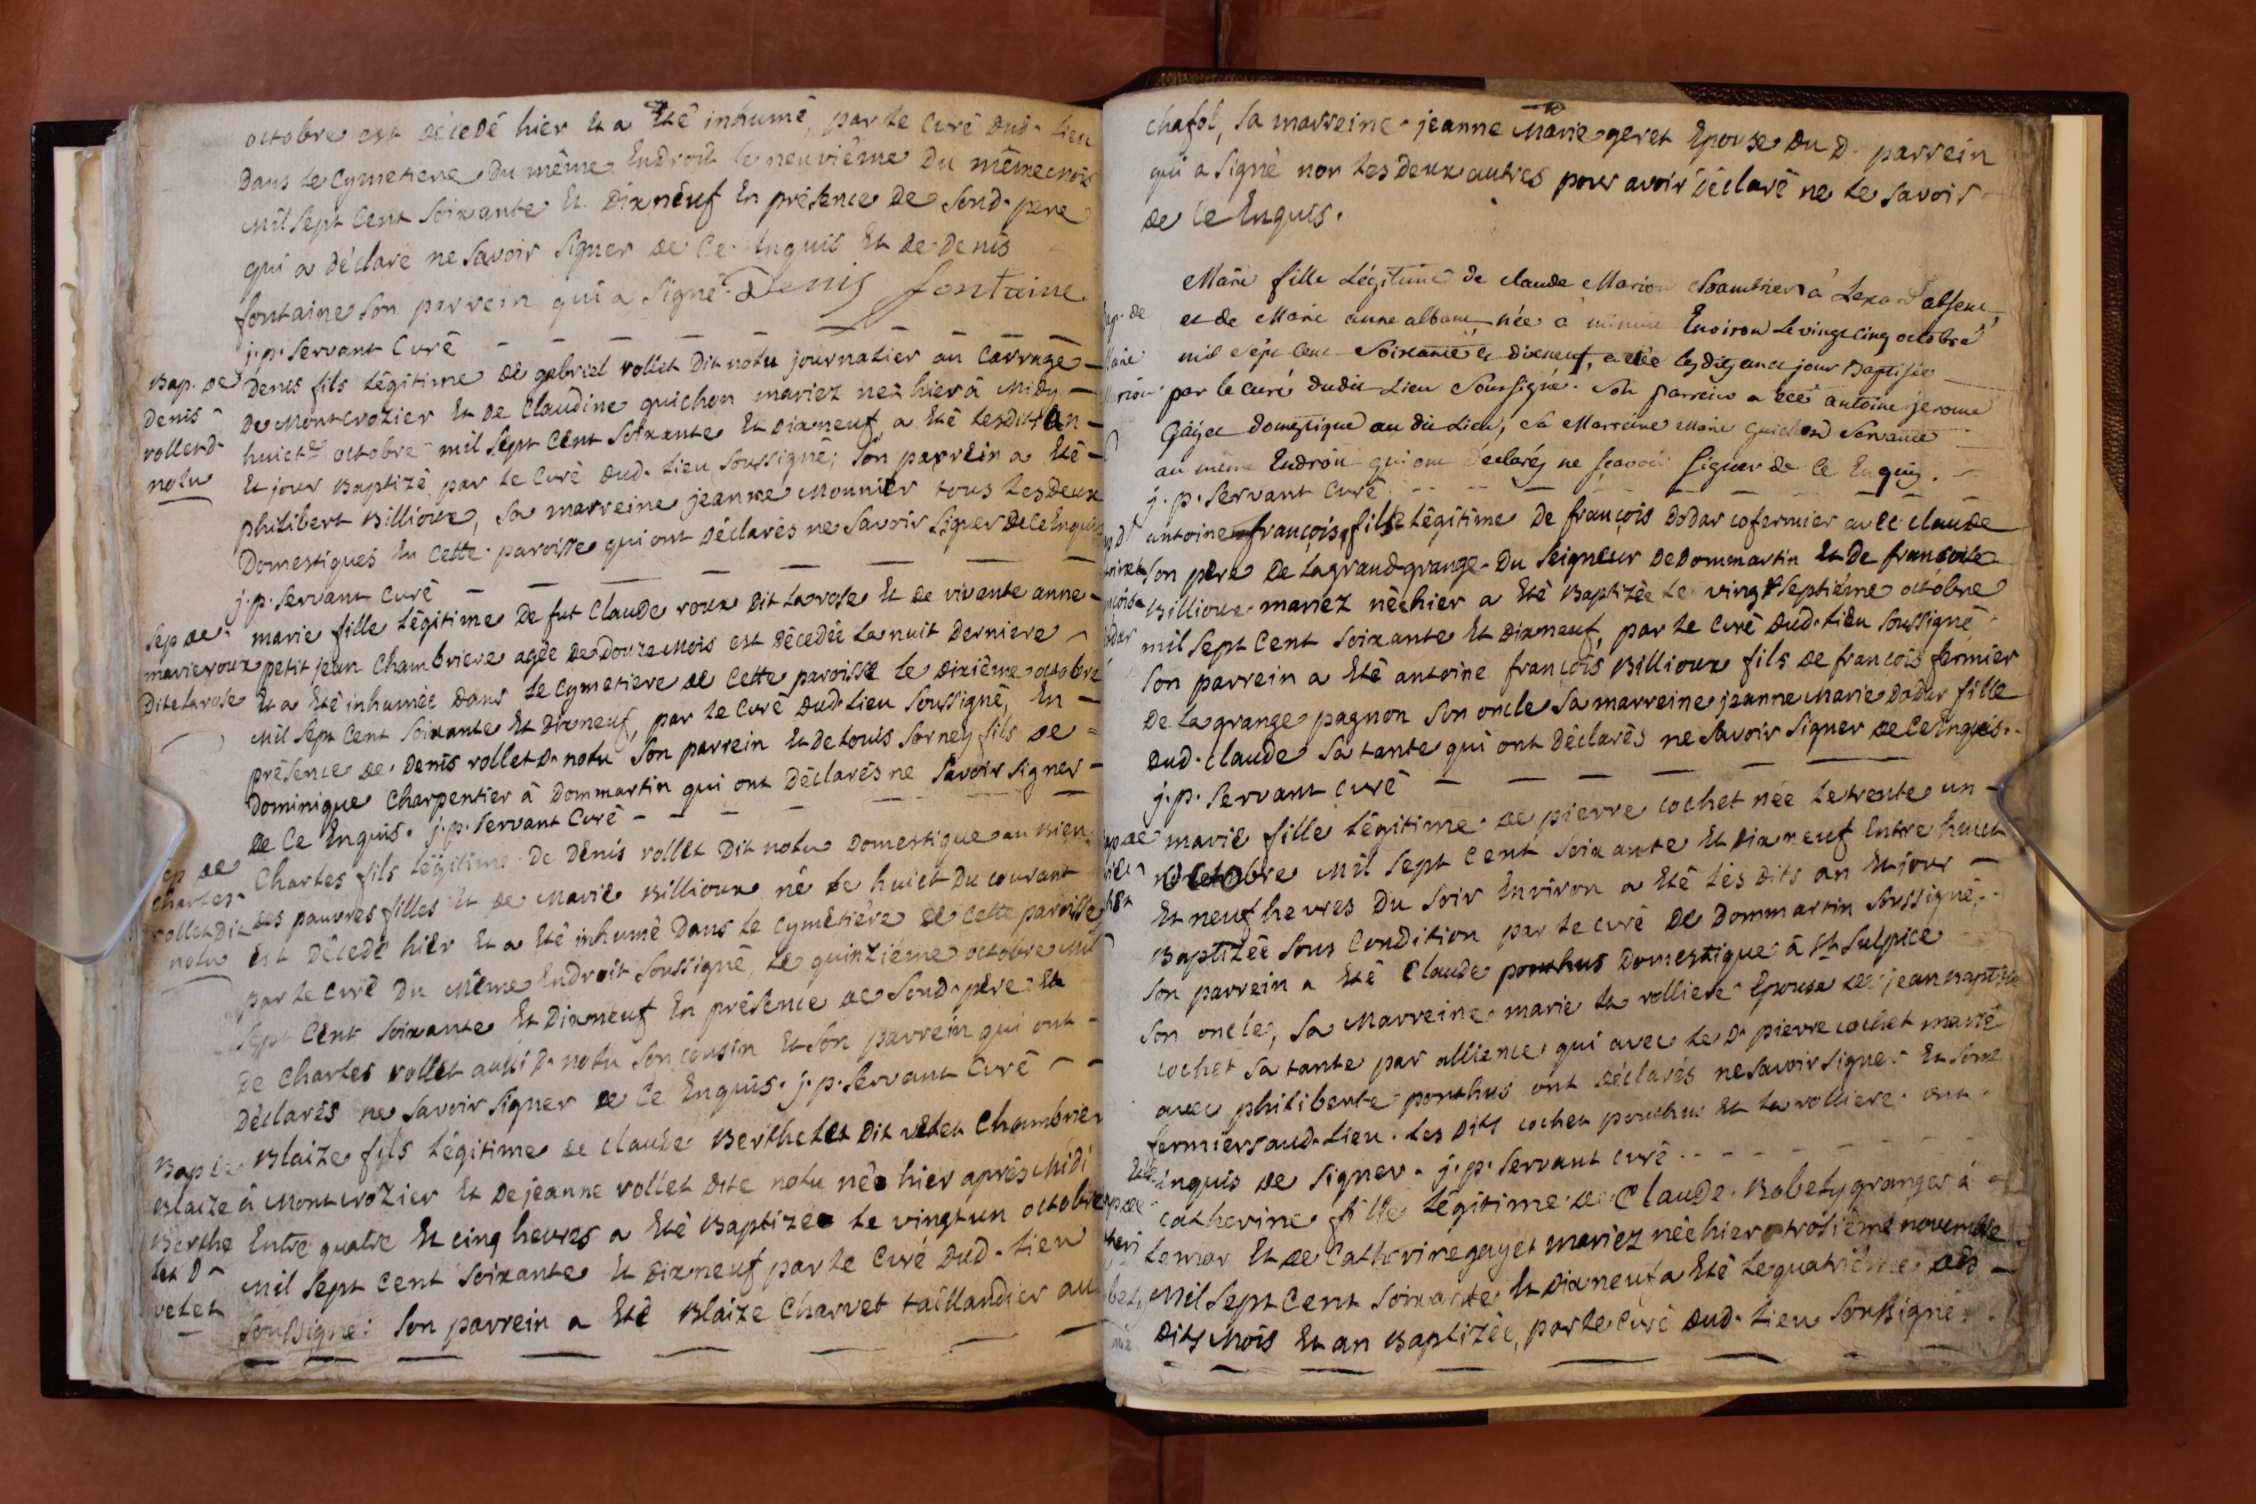 octobre est décédé hier Et a Eté inhumé, par le Curé dud. lieu
dans le Cymetiere du même Endroit le neuvième du même mois
mil sept Cent soixante Et Dixneuf En présence de sond. pere
qui a déclaré ne savoir signer de Ce Enquis Et de Denis
fontaine son parrein qui a signé. Denis fontaine
j. p. Servant Curé
Bap. de
Denis
rollet d.
notu
Denis fils légitime de gabriel rollet Dit notu journalier au Carragé
De Montcrozier Et de Claudine guichon mariez né hier à Midy
huict octobre mil sept Cent soixante Et Dixneuf, a Eté lesdits an
Et jour Baptizé par le Curé dud. lieu soussigné; son parrein a Eté
philibert Billioux, sa marreine jeanne Monnier tous les deux
Domestiques En Cette paroisse qui ont déclarés ne savoir signer de Ce Enquis
j. p. Servant Curé
Sep de
marie roux
Dite larose
marie fille légitime De fut Claude roux Dit larose Et de vivante anne
petitjean Chambriere agée de Douze Mois est décédée la nuit Derniere
Et a Eté inhumée Dans le Cymetiere de Cette paroisse le dixième octobre
mil sept Cent soixante Et Dixneuf, par le Curé dud. lieu soussigné, En
présence de Denis rollet D. notu son parrein Et de louis sorney fils de
Dominique Charpentier à Dommartin qui ont déclarés ne savoir signer
de Ce Enquis. j. p. Servant Curé
Sep de
Charles
rollet Dit
notu
Charles fils légitime De Denis rollet Dit notu Domestique au Bien
des pauvres filles Et de Marie Billioux né le huict Du courant
est Décédé hier Et a Eté inhumé Dans le Cymétière de Cette paroisse
par le Curé Du Même Endroit soussigné, le quinziéme octobre mil
sept Cent soixante Et Dixneuf En présence de sond. père Et
de Charles rollet aussi D. notu son cousin Et son parrein qui ont
déclarés ne savoir signer de Ce Enquis. j. p. Servant Curé
Bap de
Blaize
Berthe
let D.
vetet
Blaize fils légitime de claude Berthelet Dit vetet Chambrier
à Montcrozier Et De jeanne rollet Dite notu né hier aprés Midi
Entre quatre Et cinq heures a Eté Baptizé le vingt un octobre
mil sept Cent soixante Et Dixneuf par le Curé dud. lieu
soussigné: son parrein a Eté Blaize Charvet taillandier au
chafol, sa marreine jeanne Marie geret Epouse du D. parrein
qui a signé non les deux autres pour avoir déclaré ne le savoir
de Ce Enquis.
Marie fille Légitime de claude Marion Chambrier à absent,
et de Marie anne albane née à minuit Environ le vingt cinq octobre
mil sept cent soixante et dixneuf, a été lesdits an et jour Baptisée
par le curé dudit Lieu soussigné. son parrein a été antoine jerome
Gayet domestique au dit Lieu; sa Marreine Marie Guichon servante
au même Endroit qui ont déclarés ne sçavoir signer de Ce Enquis.
j. p. Servant Curé
antoine françois fille légitime De françois dodar cofermier avec claude
son pere De lagrandgrange Du seigneur De Dommartin Et De francoise
Billioux mariez née hier a Eté Baptizée le vingt septiéme octobre
mil sept Cent soixante Et Dixneuf, par le Curé dud. lieu soussigné
son parrein a Eté antoine françois Billioux fils de françois fermier
De la grange pagnon son oncle sa marreine jeanne Marie dodar fille
dud. claude sa tante qui ont déclarés ne savoir signer de Ce Enquis.
j. p. Servant Curé
marie fille légitime de pierre cochet née le trente un
octobre mil sept Cent soixante Et Dixneuf Entre huict
Et neuf heures Du soir Environ a Eté lès dits an Et jour
Baptizée sous Condition par le curé De Dommartin soussigné.
son parrein a Eté Claude ponthus Domestique à St. Sulpice
son oncle, sa Marreine marie la rolliere Epouse de jean Baptiste
cochet sa tante par allience qui avec le D. pierre cochet marié
avec philiberte ponthus ont déclarés ne savoir signer Et sont
fermiers aud. lieu. les dits cochet ponthus Et la rolliere ont
Enquis de signer. j. p. Servant curé
catherine fille légitime de Claude Bobety granger à
lemar Et de Catherine gayet mariez née hier troisieme novembre
mil sept Cent soixante Et Dixneuf a Eté le quatrième des
dits Mois Et an Baptizée, par le Curé dud. lieu soussigné.